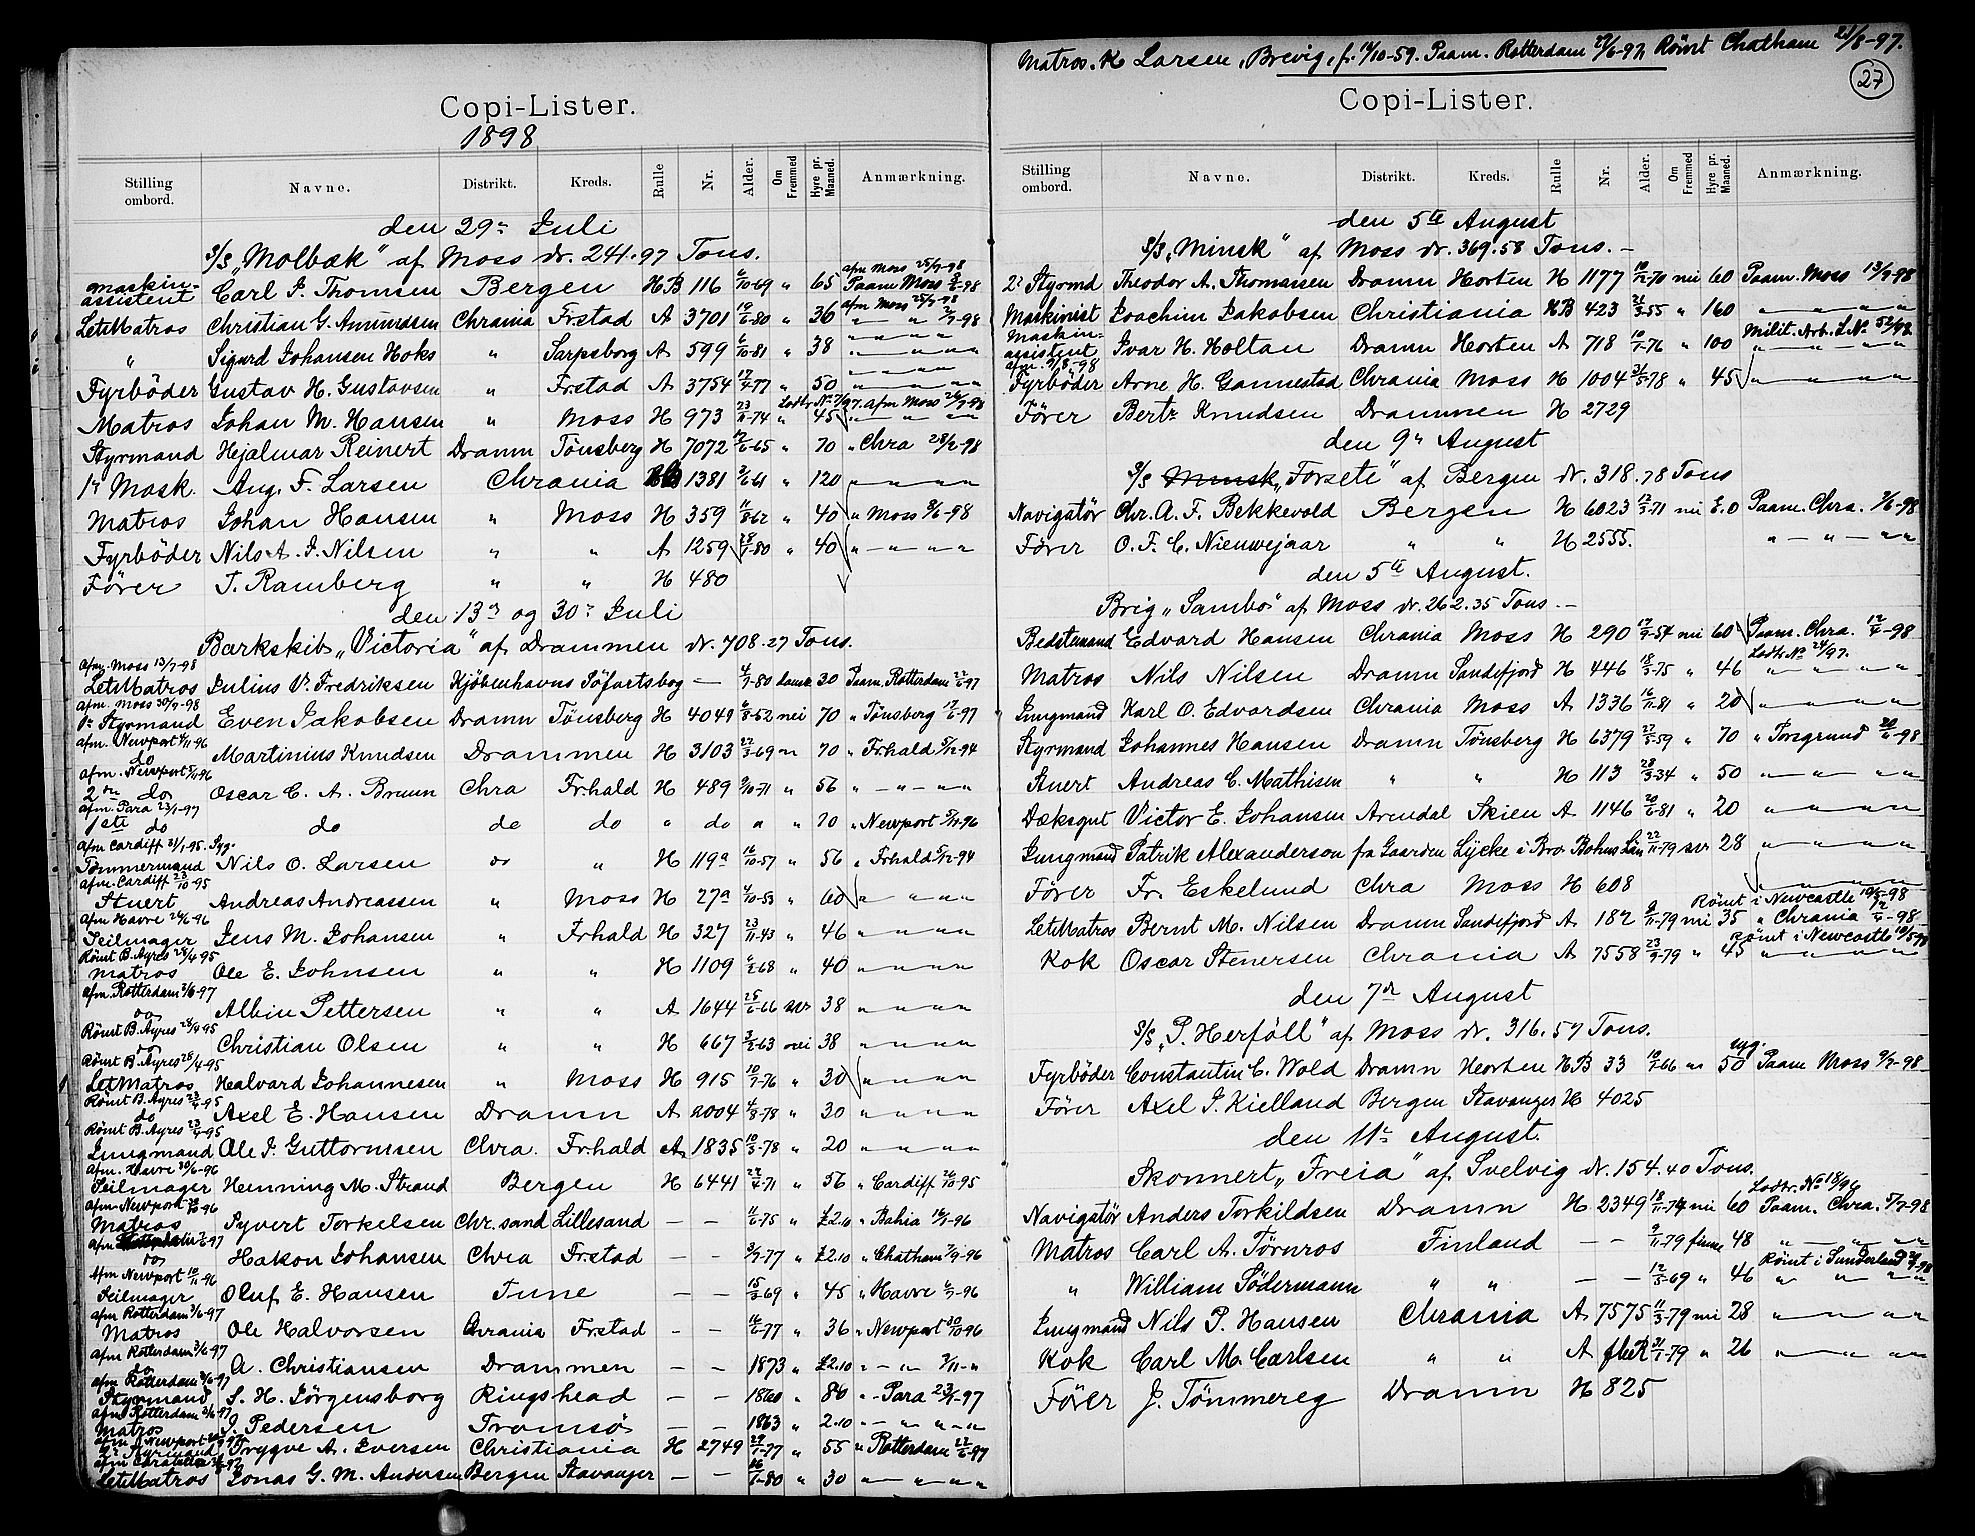 Copi-Lister.
1898
Stilling ombord. Navne. Distrikt. Kreds. Rulle Nr. Alder. Om Fremmed Hyre pr. Maaned. Anmærkning.
den 29 Juli
S/S „Molbæk" af Moss dr. 241.97 Tons.
afm Moss 25/7-98
maskin-assistent Carl J. Thomsen Bergen HB 116 6/10-69 " 65 Paam Moss 98
afm Moss 25/7-98
LetMatros Christian G. Amundsen Chrania Frstad A 3701 19/6-80 " 36 " " 98
" Sigurd Johansen Hoks " Sarpsborg A 599 6/10-81 " 38 " " " "
Fyrböder Gustav H. Gustavsen " Frstad A 3754 77 " 50 " " " "
afm Moss 98
Matros Johan M. Hansen " Moss H 973 23/11-74 " 45 " " " "
Styrmand Hjalmar Reinert Dramn Tönsberg H 7072 65 " 70 " Chra 28/2-98
1r Mask. Aug. F. Larsen Chrania 1381 61 " 120 " " " "
Matros Johan Hansen " Moss H 359 11/8-62 " 40 " Moss 98
Fyrböder Nils A. J. Nilsen " " A 1259 28/1-80 " 40 " " " "
Förer T. Ramberg " " H 480
den 13 og 30 Juli
Barkskib „Victoria" af Drammen dr. 708.27 Tons.
afm. Moss 13/7-98
LetMatros Julius V. Fredriksen Kjöbenhavns Söfartsbog — 4/7-80 dansk 30 Paam. Rotterdam 22/6-97
afm. Moss 30/7-98
1r Styrmand Even Jakobsen Dramn Tönsberg H 4049 6/8-52 nei 70 " Tönsberg 97
afm. Newport 96
do Martinius Knudsen Drammen H 3103 22/3-69 " 70 " Frhald 5/12-94
afm. Newport 96
2den do Oscar C. A. Bruun Chra Frhald H 489 9/10-71 " 56 " " " "
afm. Para 23/1-97
1ste do do do do " do " " 70 " Newport 96
afm Cardiff 31/1-95.
Tömmermand Nils O. Larsen do " H 119a 16/10-57 " 56 " Frhald 5/12-94
afm. Cardiff 28/10-95
Stuert Andreas Andreassen " Moss H 27a 4/10-53 " 60 " " " "
afm Havre 26/6-96
Seilmager Jens M. Johansen " Frhald H 327 23/11-43 " 46 " " " "
Römt B. Ayres 28/4-95
Matros Ole E. Johnsen " " H 1109 6/2-68 " 40 " " " "
afm. Rotterdam 3/6-97
do Albin Pettersen " " A 1644 25/6-66 svr 38 " " " "
Römt B. Ayres 28/4-95
do Christian Olsen " " H 667 3/2-63 nei 38 " " " "
Römt B. Ayres 28/4-95
LetMatros Halvard Johannesen " Moss H 915 10/7-76 " 30 " " " "
Römt B. Ayres 95
do Axel E. Hansen Dramn A 2004 4/8-78 " 30 " " " "
Römt B. Ayres 95
Jungmand Ole J. Guttormsen Chra. Frhald A 1835 10/3-78 " 20 " " " "
afm. Havre 30/6-96
Seilmager Henning M. Strand Bergen H 6441 71 " 56 " Cardiff 26/10-95
afm. Newport 96
Matros Syvert Torkelsen Chr.sand Lillesand — — 75 " £2.10 " Bahia 96
afm 97
do Hakon Johansen Chra Frstad — — 3/7-77 " £2.10 " Chatham 7/9-96
Afm Newport 10/11-96
Seilmager Oluf E. Hansen Tune — — 15/2-69 " 45 " Havre 96
afm Rotterdam 3/6-97
Matros Ole Halvorsen Chrania Frstad — — 16/6-77 " 36 " Newport 30/10-96
afm Rotterdam 3/6-97
do A. Christiansen Drammen — — 1873 " £2.10 " " "
afm Rotterdam 3/6-97
Styrmand S. H. Jörgensborg Ringshead — — 1860 " 80 " Para 23/1-97
afm Rotterdam 3/6-97
Matros J. Pedersen Tromsö — — 1863 " 2.10 " " " "
afm Newport
2 Styrmand Trygve A. Iversen Christiania H 2749 29/1-77 " 55 " Rotterdam 22/6-97
LetMatros Jonas G. M. Andersen Bergen Stavanger — — 16/1-80 " 30 " " " "
Matros. K Larsen, Brevig, f. 14/10-59. Paam. Rotterdam 97, Römt Chatham 23/8-97.
27
Copi-Lister.
Stilling ombord. Navne. Distrikt. Kreds. Rulle Nr. Alder. Om Fremmed Hyre pr. Maaned. Anmærkning.
den 5te August
S/S „Minsk" af Moss dr. 369.58 Tons.—
2 Styrmd Theodor A. Thomassen Dramn Horten H 1177 10/12-70 nei 60 Paam. Moss 13/7-98
Maskinist Joachim Jakobsen Christiania HB 423 21/3-55 " 160 " " " "
Milit. Arb. L No 52/98
Maskin-assistent Ivar H. Holtan Dramn Horten A 718 10/1-76 " 100 " " " "
afm. 98
Fyrböder Arne H. Gannestad Chrania Moss H 1004 21/5-78 " 45 " " " "
Förer Bertr Knudsen Drammen H 2729
den 9 August
S/S Minsk „Forsete" af Bergen dr. 318.78 Tons
Navigatör Chr. A. F. Bekkevold Bergen H 6023 12/3-71 nei E.0 Paam. Chra. 98
Förer O. F. C. Nieuwejaar " " H 2555. " " " "
den 5te August.
Brig „Sambo" af Moss dr. 262.35 Tons.—
Bedstemand Edvard Hansen Chrania Moss H 290 17/9-54 nei 60 Paam. Chra. 12/4-98
Lodtr No 24/97.
Matros Nils Nilsen Dramn Sandefjord H 446 18/3-75 " 46 " " " "
Jungmand Karl O. Edvardsen Chrania Moss A 1336 16/11-81 " 20 " " " "
Styrmand Johannes Hansen Dramn Tönsberg H 6379 59 " 70 " Porsgrund 98
Stuert Andreas C. Mathisen " " H 113 28/3-34 " 50 " " " "
Dæksgut Victor E. Johansen Arendal Skien A 1146 20/6-81 " 20 " " " "
Jungmand Patrik Alexanderson fra Gaarden Lycke i Bro Bohus Län 22/11-79 svr 28 " " " "
Förer Fr. Eskelund Chra Moss H 608 " " " "
Römt i Newcastle 98
LetMatros Bernt M. Nilsen Dramn Sandefjord A 182 9/11-79 nei 35 " Chrania 12/4-98
Römt i Newcastle
Kok Oscar Stenersen Chrania A 7558 79 " 45 " " " "
den 7de August
S/S „P. Herföll" af Moss dr. 316.57 Tons.
Fyrböder Constantin C. Wold Dramn Horten HB 33 66 " 50 Paam Moss 98
Förer Axel J. Kielland Bergen Stavanger H 4025
den 11te August.
Skonnert „Freia" af Svelvig dr. 154.40 Tons.
Lodtr. No 18/96
Navigatör Anders Torkildsen Dramn H 2349 18/11-74 nei 60 Paam. Chra. 5/7-98
Matros Carl A. Törnros Finland — — 9/11-79 finne 48 " " " "
Römt i Sunderland 98
" William Södermann " " — — 12/3-69 " 46 " " " "
Jungmand Nils P. Hansen Chrania A 7575 11/3-79 nei 28 " " " "
Kok Carl M. Carlsen " " A 79 " 26 " " " "
Förer J. Tömmereg Dramn H 825